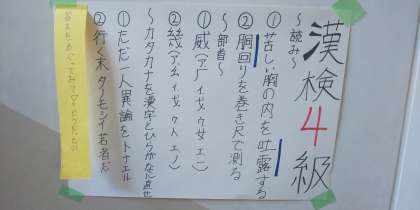 漢検4級
〜読み〜
①苦しい胸の内を吐露する
②胴回りを巻き尺で測る
〜部首〜
①威(ア厂 イ戈 ウ女 エ二)
②幾(ア幺 イ戈 ウ人 エノ)
〜カタカナを漢字とひらがなに直せ
①ただ一人異論をトナエル
②行く末タノモシイ若者だ